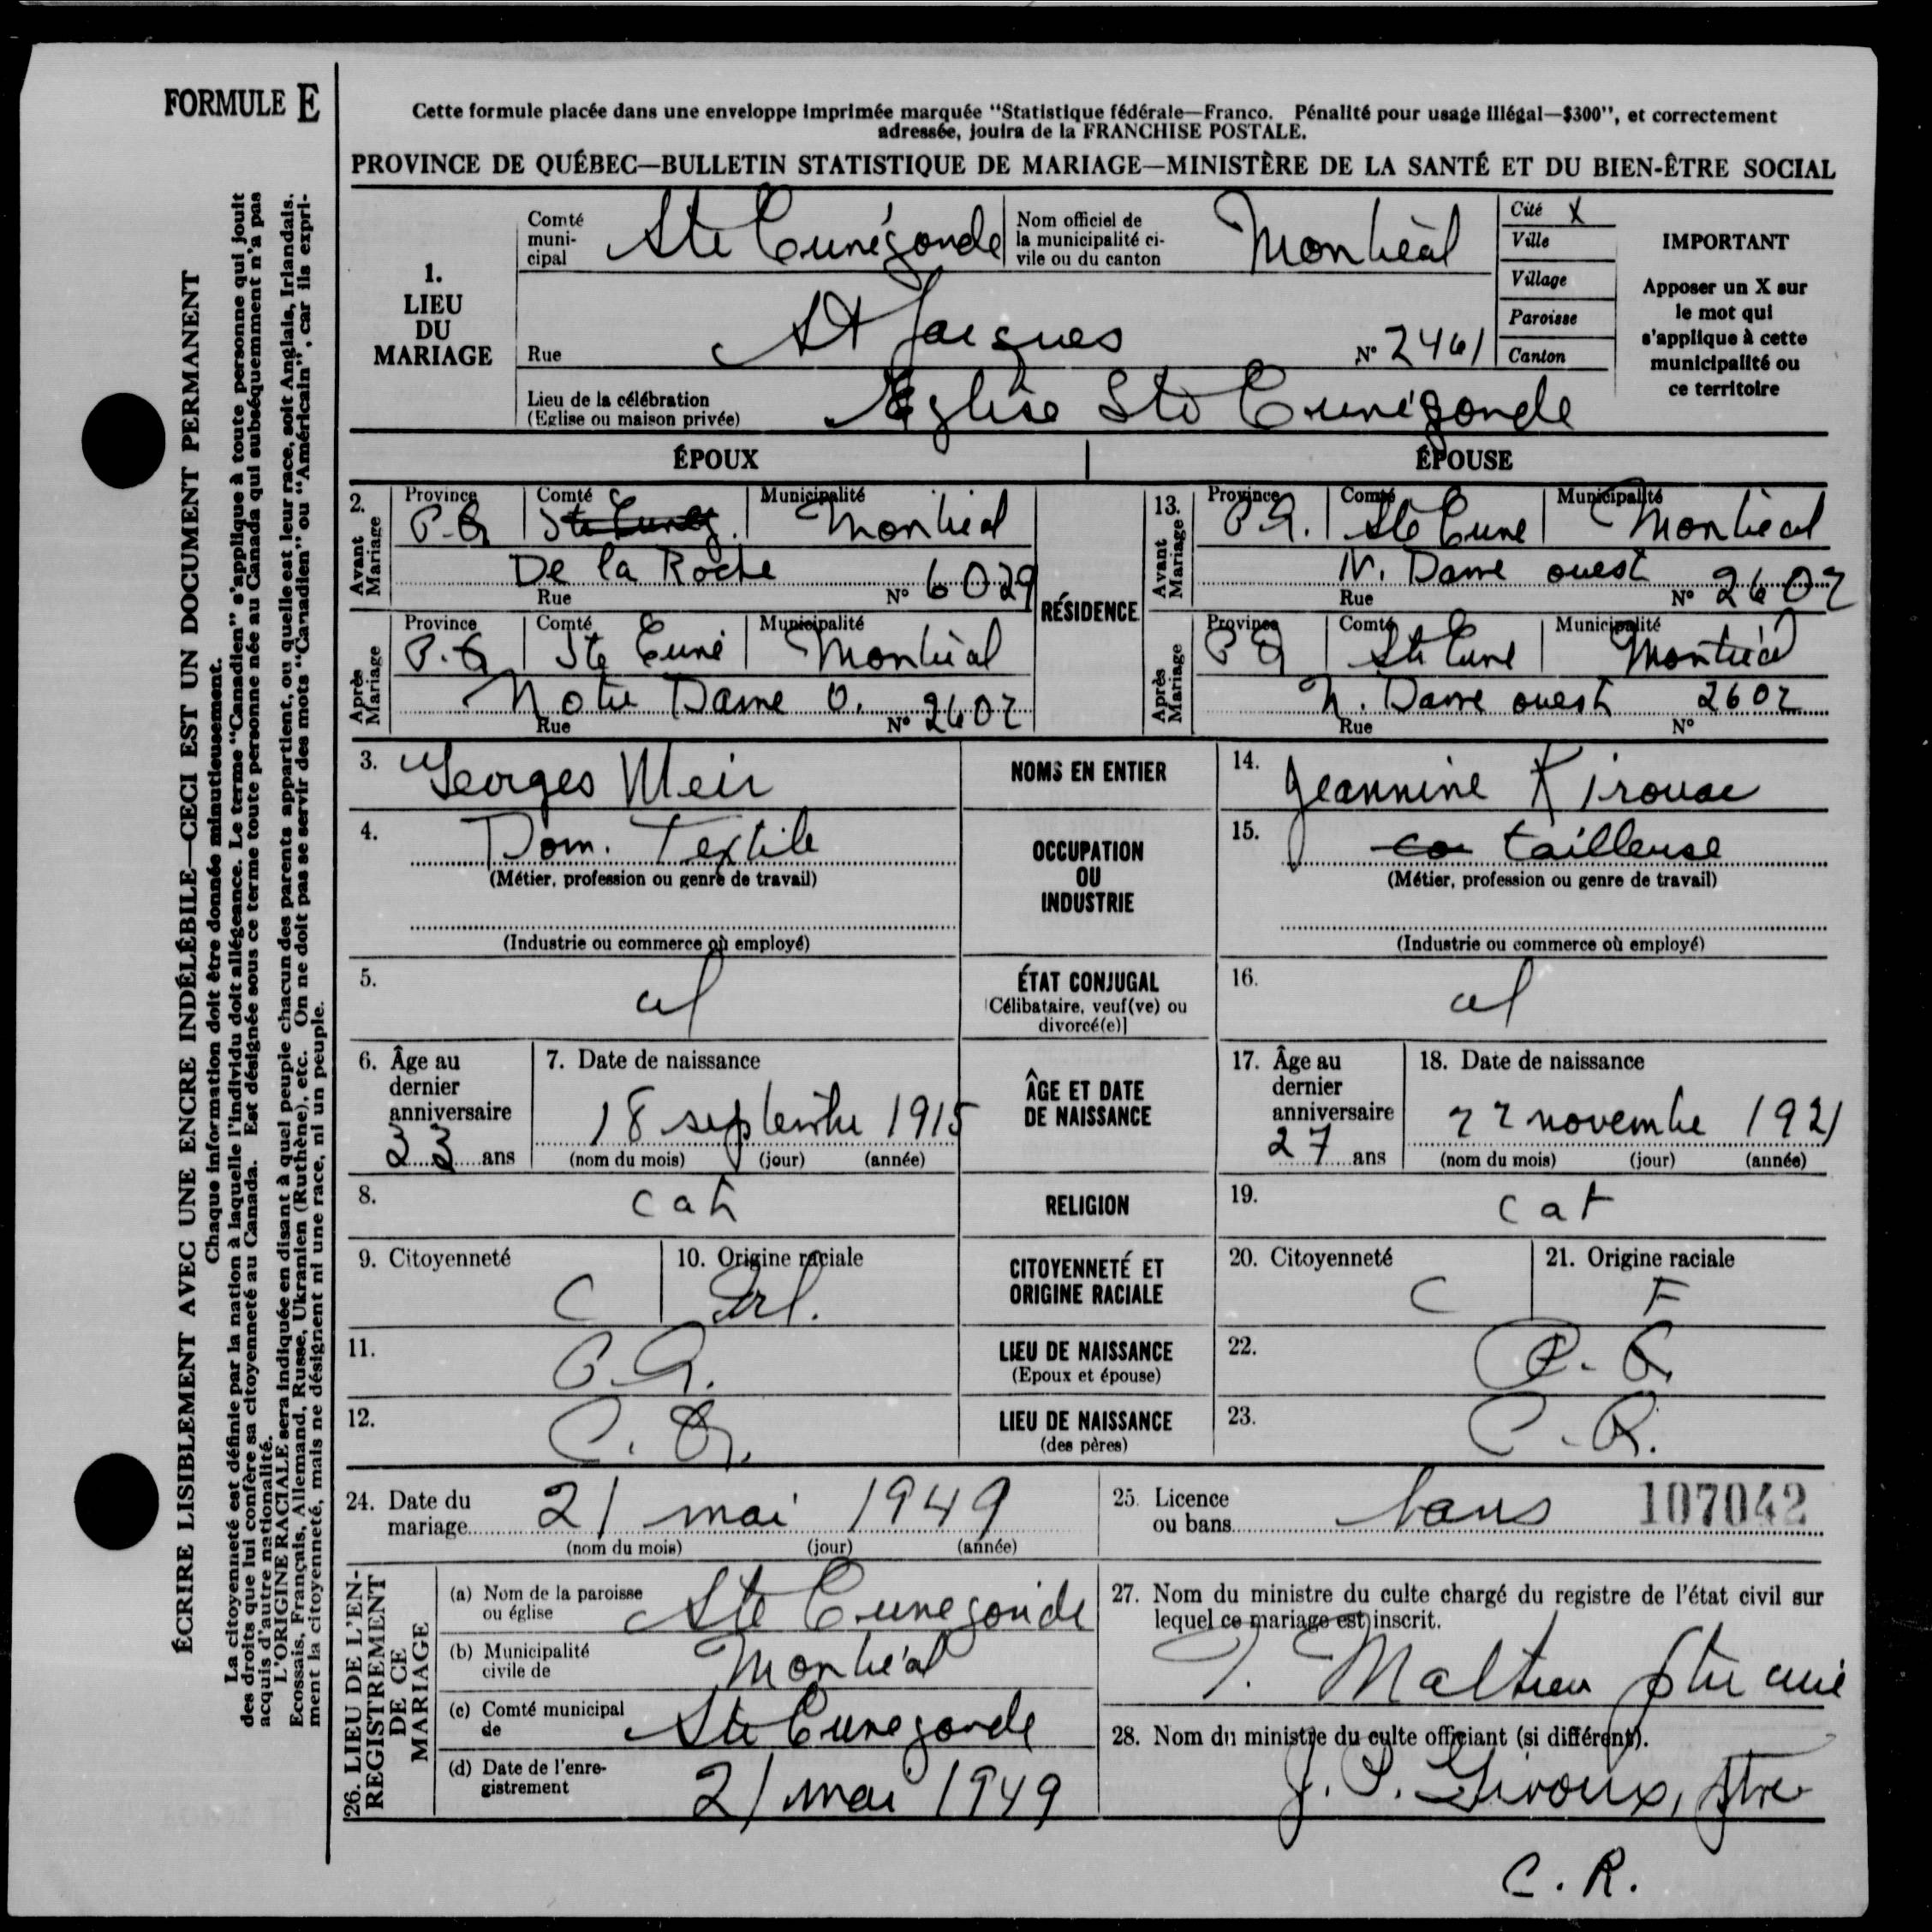 FORMULE E
Cette formule placée dans une enveloppe imprimée marquée “Statistique fédérale—Franco. Pénalité pour usage illégal—$300”, et correctement
adressée, jouira de la FRANCHISE POSTALE.
PROVINCE DE QUÉBEC—BULLETIN STATISTIQUE DE MARIAGE—MINISTÈRE DE LA SANTÉ ET DU BIEN-ÊTRE SOCIAL
ÉCRIRE LISIBLEMENT AVEC UNE ENCRE INDÉLÉBILE—CECI EST UN DOCUMENT PERMANENT
Chaque information doit être donnée minutieusement.
La citoyenneté est définie par la nation à laquelle l'individu doit allégeance. Le terme “Canadien” s'applique à toute personne qui jouit
des droits que lui confère sa citoyenneté au Canada. Est désignée sous ce terme toute personne née au Canada qui subséquemment n'a pas
acquis d'autre nationalité.
L'ORIGINE RACIALE sera indiquée en disant à quel peuple chacun des parents appartient, ou quelle est leur race, soit Anglais, Irlandais,
Ecossais, Français, Allemand, Russe, Ukranien (Ruthène), etc. On ne doit pas se servir des mots “Canadien” ou “Américain”, car ils expri-
ment la citoyenneté, mais ne désignent ni une race, ni un peuple.
1.
LIEU
DU
MARIAGE
Comté
muni-
cipal Ste Cunégonde
Nom officiel de
la municipalité ci-
vile ou du canton Montréal
Cité X
Ville
Village
Paroisse
Canton
IMPORTANT
Apposer un X sur
le mot qui
s'applique à cette
municipalité ou
ce territoire
Rue St Jacques N° 2461
Lieu de la célébration
(Eglise ou maison privée) Eglise Ste Cunégonde
ÉPOUX ÉPOUSE
2. Avant Mariage Province P.Q. Comté Ste Cuneg. Municipalité Montréal
De la Roche 6029
Rue N°
RÉSIDENCE
13. Avant Mariage Province P.Q. Comté Ste Cune Municipalité Montréal
N. Dame ouest 2602
Rue N°
Après Mariage Province P.Q. Comté Ste Cuné Municipalité Montréal
Notre Dame O. 2602
Rue N°
Après Mariage Province P.Q. Comté Ste Cune Municipalité Montréal
N. Dame ouest 2602
Rue N°
3. Georges Meir NOMS EN ENTIER 14. Jeannine Kirouac
4. Dom. Textile OCCUPATION OU INDUSTRIE 15. tailleuse
(Métier, profession ou genre de travail) (Métier, profession ou genre de travail)
(Industrie ou commerce où employé) (Industrie ou commerce où employé)
5. cel ÉTAT CONJUGAL 16. cel
[Célibataire, veuf(ve) ou
divorcé(e)]
6. Âge au
dernier
anniversaire
33 ans
7. Date de naissance
18 septembre 1915
(nom du mois) (jour) (année)
ÂGE ET DATE
DE NAISSANCE
17. Âge au
dernier
anniversaire
27 ans
18. Date de naissance
22 novembre 1921
(nom du mois) (jour) (année)
8. cat RELIGION 19. cat
9. Citoyenneté C 10. Origine raciale Irl.
CITOYENNETÉ ET
ORIGINE RACIALE
20. Citoyenneté C 21. Origine raciale F
11. P.Q. LIEU DE NAISSANCE 22. P.Q.
(Epoux et épouse)
12. P.Q. LIEU DE NAISSANCE 23. P.Q.
(des pères)
24. Date du
mariage 21 mai 1949
(nom du mois) (jour) (année)
25. Licence
ou bans bans 107042
26. LIEU DE L'EN-
REGISTREMENT
DE CE
MARIAGE
(a) Nom de la paroisse
ou église Ste Cunegonde
(b) Municipalité
civile de Montréal
(c) Comté municipal
de Ste Cunegonde
(d) Date de l'enre-
gistrement 21 mai 1949
27. Nom du ministre du culte chargé du registre de l'état civil sur
lequel ce mariage est inscrit.
Mathieu ptre curé
28. Nom du ministre du culte officiant (si différent).
J. P. Giroux, ptre
C. R.